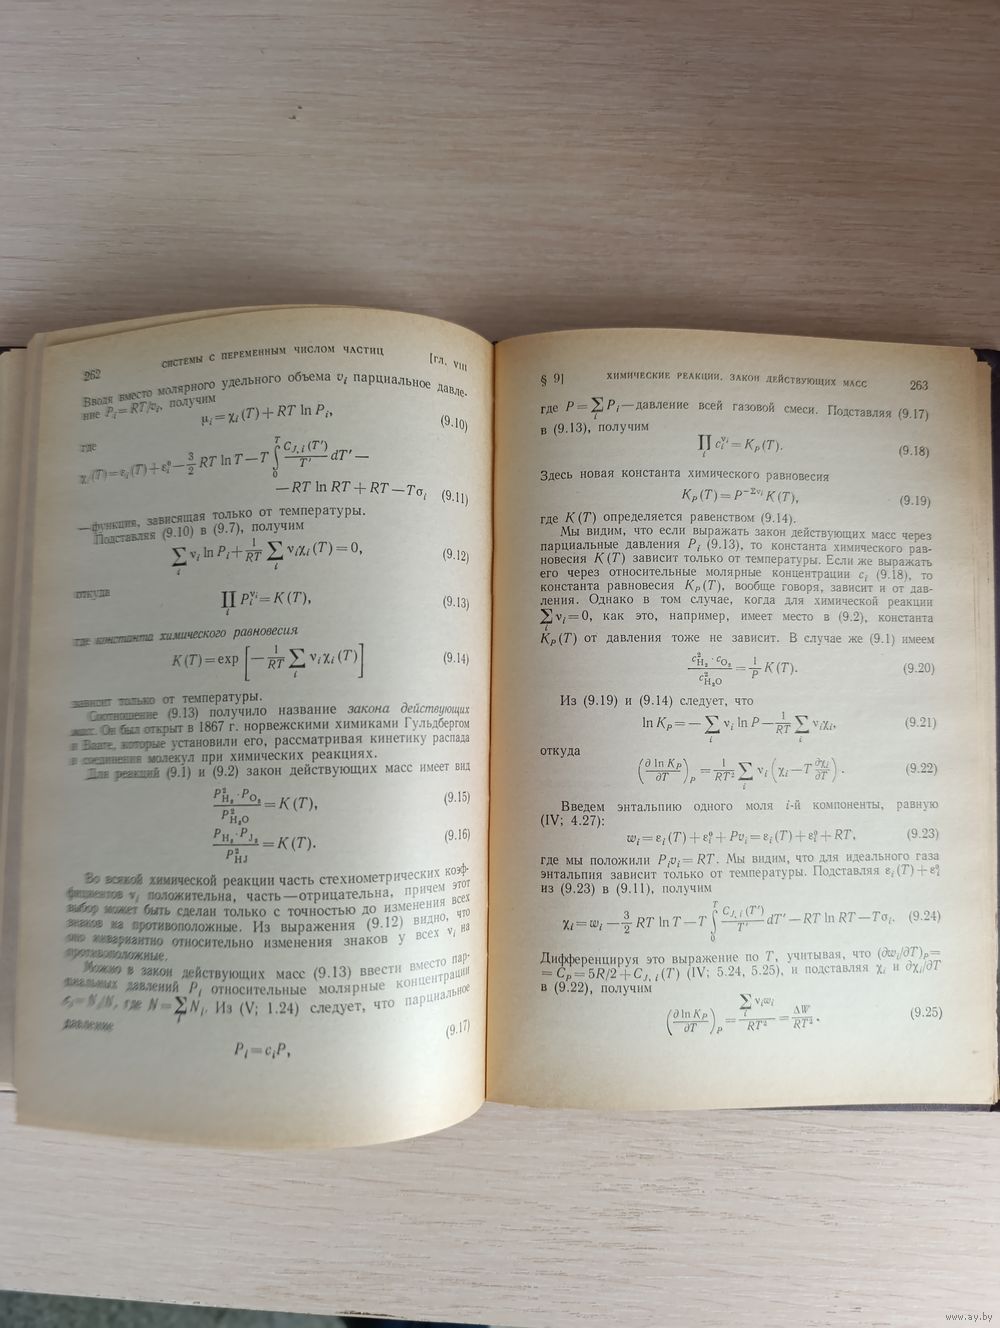 262
СИСТЕМЫ С ПЕРЕМЕННЫМ ЧИСЛОМ ЧАСТИЦ
[ГЛ. VIII
Вводя вместо молярного удельного объема v_i парциальное давле-
ние P_i = RT/v_i, получим
μ_i = χ_i (T) + RT ln P_i, (9.10)
где
χ_i(T) = ε_i(T) + ε_i^0 − 3/2 RT ln T − T ∫_0^T C_{J, i}(T')/T' dT' −
− RT ln RT + RT − Tσ_i (9.11)
— функция, зависящая только от температуры.
Подставляя (9.10) в (9.7), получим
∑_i ν_i ln P_i + 1/RT ∑_i ν_i χ_i (T) = 0, (9.12)
откуда
∏_i P_i^{ν_i} = K (T), (9.13)
где константа химического равновесия
K (T) = exp [ − 1/RT ∑_i ν_i χ_i (T) ] (9.14)
зависит только от температуры.
Соотношение (9.13) получило название закона действующих
масс. Он был открыт в 1867 г. норвежскими химиками Гульдбергом
и Вааге, которые установили его, рассматривая кинетику распада
и соединения молекул при химических реакциях.
Для реакций (9.1) и (9.2) закон действующих масс имеет вид
P²_{H₂} · P_{O₂} / P²_{H₂O} = K (T), (9.15)
P_{H₂} · P_{J₂} / P²_{HJ} = K (T). (9.16)
Во всякой химической реакции часть стехиометрических коэф-
фициентов ν_i положительна, часть — отрицательна, причем этот
выбор может быть сделан только с точностью до изменения всех
знаков на противоположные. Из выражения (9.12) видно, что
оно инвариантно относительно изменения знаков у всех ν_i на
противоположные.
Можно в закон действующих масс (9.13) ввести вместо пар-
циальных давлений P_i относительные молярные концентрации
c_i = N_i/N, где N = ∑_i N_i. Из (V; 1.24) следует, что парциальное
давление
P_i = c_i P, (9.17)
§ 9]
ХИМИЧЕСКИЕ РЕАКЦИИ. ЗАКОН ДЕЙСТВУЮЩИХ МАСС
263
где P = ∑_i P_i — давление всей газовой смеси. Подставляя (9.17)
в (9.13), получим
∏_i c_i^{ν_i} = K_P (T). (9.18)
Здесь новая константа химического равновесия
K_P (T) = P^{−Σν_i} K (T), (9.19)
где K (T) определяется равенством (9.14).
Мы видим, что если выражать закон действующих масс через
парциальные давления P_i (9.13), то константа химического рав-
новесия K (T) зависит только от температуры. Если же выражать
его через относительные молярные концентрации c_i (9.18), то
константа равновесия K_P (T), вообще говоря, зависит и от дав-
ления. Однако в том случае, когда для химической реакции
∑_i ν_i = 0, как это, например, имеет место в (9.2), константа
K_P (T) от давления тоже не зависит. В случае же (9.1) имеем
c²_{H₂} · c_{O₂} / c²_{H₂O} = 1/P K (T). (9.20)
Из (9.19) и (9.14) следует, что
ln K_P = − ∑_i ν_i ln P − 1/RT ∑_i ν_i χ_i, (9.21)
откуда
(∂ ln K_P / ∂T)_P = 1/RT² ∑_i ν_i (χ_i − T ∂χ_i/∂T). (9.22)
Введем энтальпию одного моля i-й компоненты, равную
(IV; 4.27):
w_i = ε_i (T) + ε_i^0 + Pv_i = ε_i (T) + ε_i^0 + RT, (9.23)
где мы положили P_i v_i = RT. Мы видим, что для идеального газа
энтальпия зависит только от температуры. Подставляя ε_i (T) + ε_i^0
из (9.23) в (9.11), получим
χ_i = w_i − 3/2 RT ln T − T ∫_0^T C_{J, i}(T')/T' dT' − RT ln RT − Tσ_i. (9.24)
Дифференцируя это выражение по T, учитывая, что (∂w_i/∂T)_P =
= C_P = 5R/2 + C_{J, i} (T) (IV; 5.24, 5.25), и подставляя χ_i и ∂χ_i/∂T
в (9.22), получим
(∂ ln K_P / ∂T)_P = ∑_i ν_i w_i / RT² = ΔW / RT². (9.25)
www.ay.by